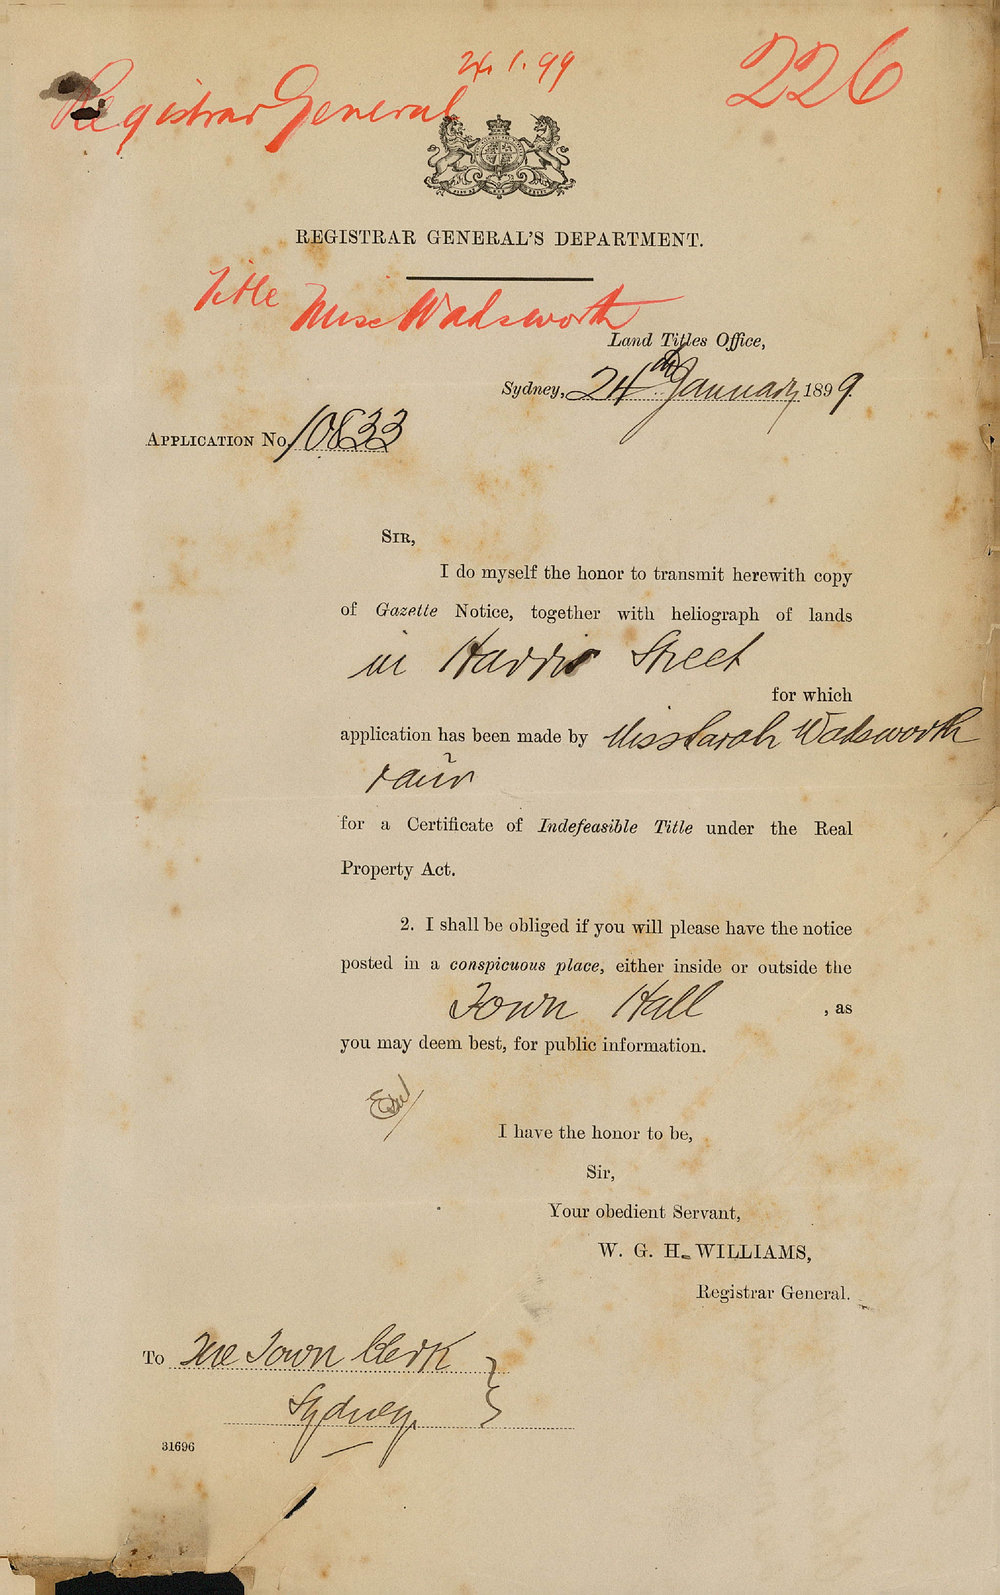 24.1.99
226
Registrar General
REGISTRAR GENERAL'S DEPARTMENT.
Title Miss Wadsworth
Land Titles Office,
Sydney, 24th January 1899.
APPLICATION No. 10833
SIR,
I do myself the honor to transmit herewith copy
of Gazette Notice, together with heliograph of lands
in Harris Street
for which
application has been made by Miss Sarah Wadsworth
for a Certificate of Indefeasible Title under the Real
Property Act.
2. I shall be obliged if you will please have the notice
posted in a conspicuous place, either inside or outside the
Town Hall , as
you may deem best, for public information.
I have the honor to be,
Sir,
Your obedient Servant,
W. G. H. WILLIAMS,
Registrar General.
To The Town Clerk
Sydney.
31696